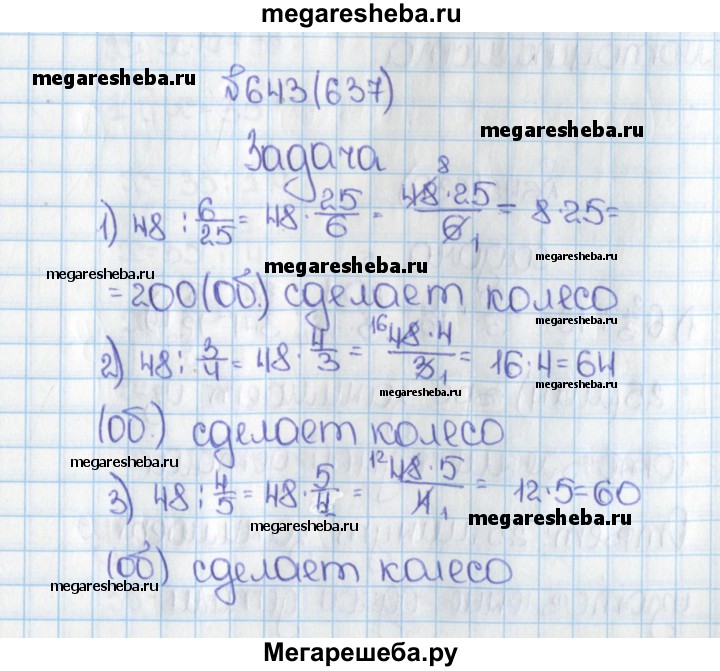 megaresheba.ru
megaresheba.ru
№643(637)
megaresheba.ru
Задача
1) 48 : 6/25 = 48 · 25/6 = 48 · 25/6 = 8 · 25 =
8 1
megaresheba.ru
megaresheba.ru
megaresheba.ru
= 200(об.) сделает колесо
megaresheba.ru
2) 48 : 3/4 = 48 · 4/3 = 48 · 4/3 = 16 · 4 = 64
16 1
megaresheba.ru
megaresheba.ru
(об.) сделает колесо
megaresheba.ru
3) 48 : 4/5 = 48 · 5/4 = 48 · 5/4 = 12 · 5 = 60
12 1
megaresheba.ru
megaresheba.ru
(об) сделает колесо
megaresheba.ru
megaresheba.ru
Мегарешеба.ру